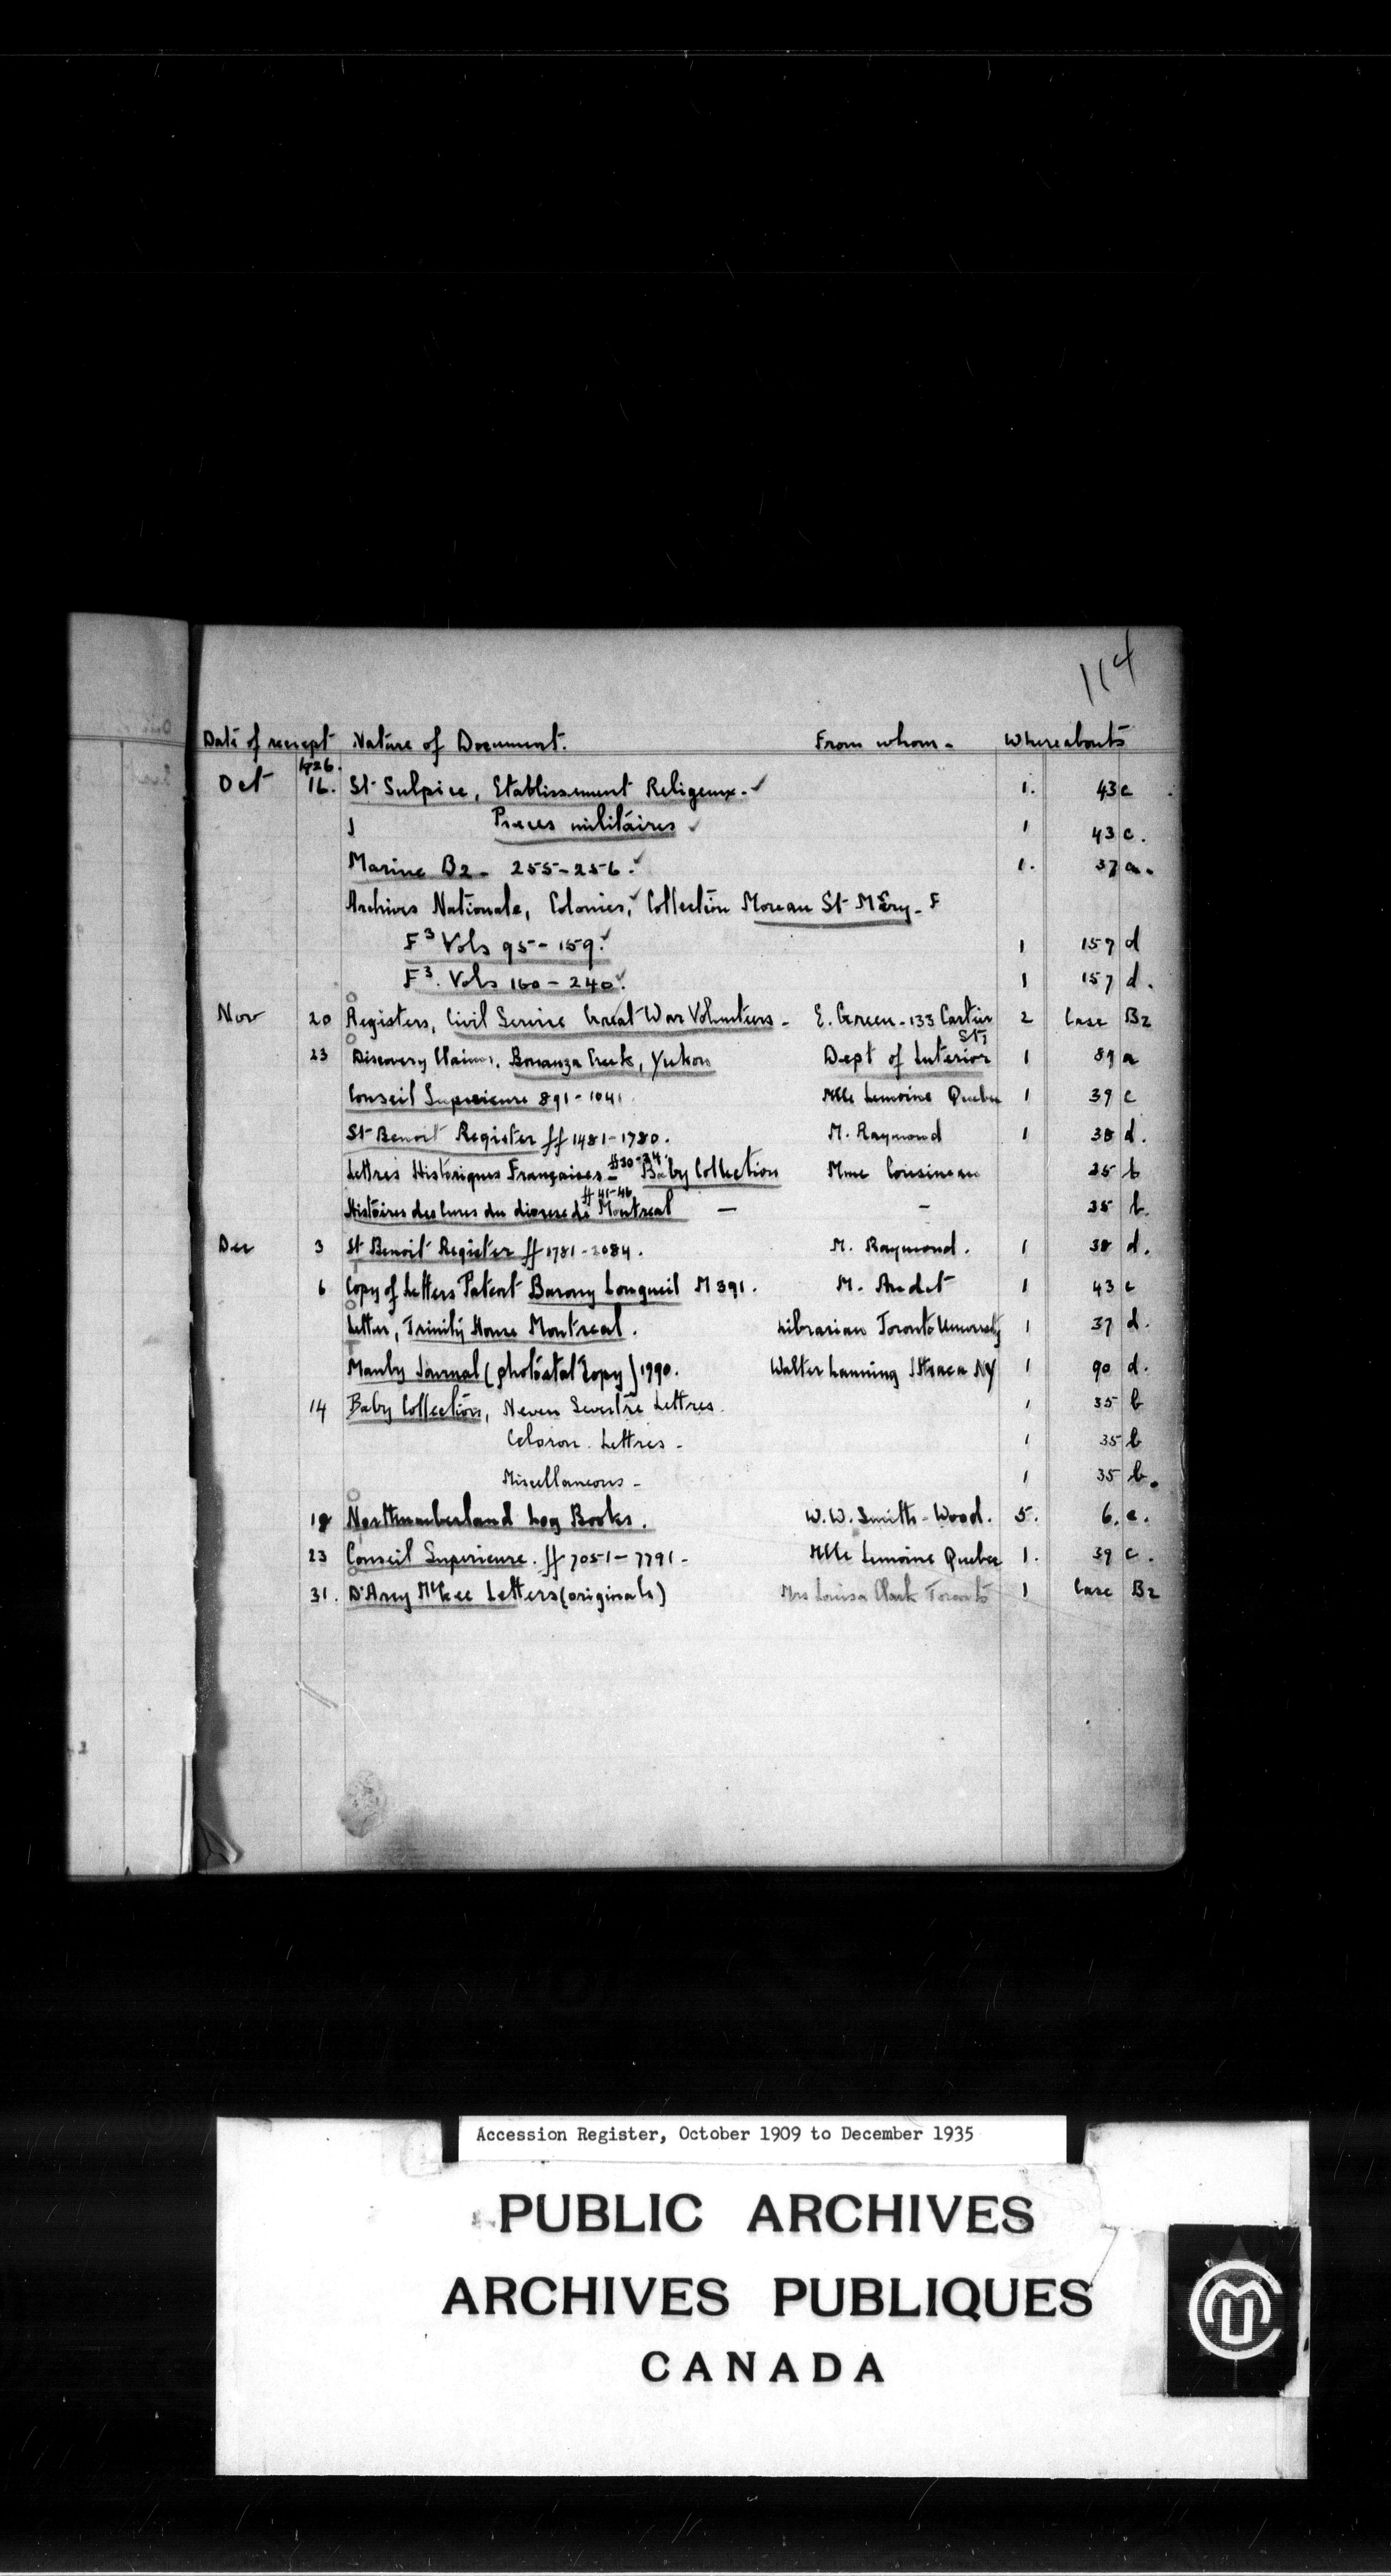 114
Date of receipt Nature of Document. From whom - Whereabouts
1926.
Oct 16. St Sulpice, Etablissement Religeux. ✓ 1. 43 c
Pieces militaires ✓ 1 43 c.
Marine B2 - 255-256. ✓ 1. 37 a.
Archives Nationale, Colonies, Collection Moreau St Mery - F
F3 Vols 95-159. ✓ 1 157 d
F3. Vols 160-240. ✓ 1 157 d.
Nov 20 Registers, Civil Service Great War Volunteers - E. Green - 133 Cartier St; 2 Case B2
23 Discovery Claims, Bonanza Creek, Yukon Dept of Interior 1 89 a
Conseil Superieure 891-1041 Mlle Lemoine Quebec 1 39 c
St Benoit Register ff 1481-1780. M. Raymond 1 38 d.
Lettres Historiques Françaises - ff 30-34. Baby Collection Mme Cousineau 35 b
Histoires des cures du diocese de Montreal ff 41-46 — - 35 b.
Dec 3 St Benoit Register ff 1781-2084. M. Raymond. 1 38 d.
6 Copy of Letters Patent Barony Longueil M 391. M. Audet 1 43 c
Letter, Trinity House Montreal. Librarian Toronto University 1 37 d.
Manby Journal (photostat Copy) 1790. Walter Lanning Ithaca NY 1 90 d.
14 Baby Collection, Neven Sevestre Lettres. 1 35 b
Celoron. Lettres - 1 35 b
Miscellaneous - 1 35 b.
18 Northumberland Log Books. W.W. Smith - Wood. 5. 6. c.
23 Conseil Superieure. ff 7051-7791 - Mlle Lemoine Quebec 1. 39 c.
31. D'Arcy McGee Letters (originals) Mrs Louisa Clark Toronto 1 Case B2
Accession Register, October 1909 to December 1935
PUBLIC ARCHIVES
ARCHIVES PUBLIQUES
CANADA